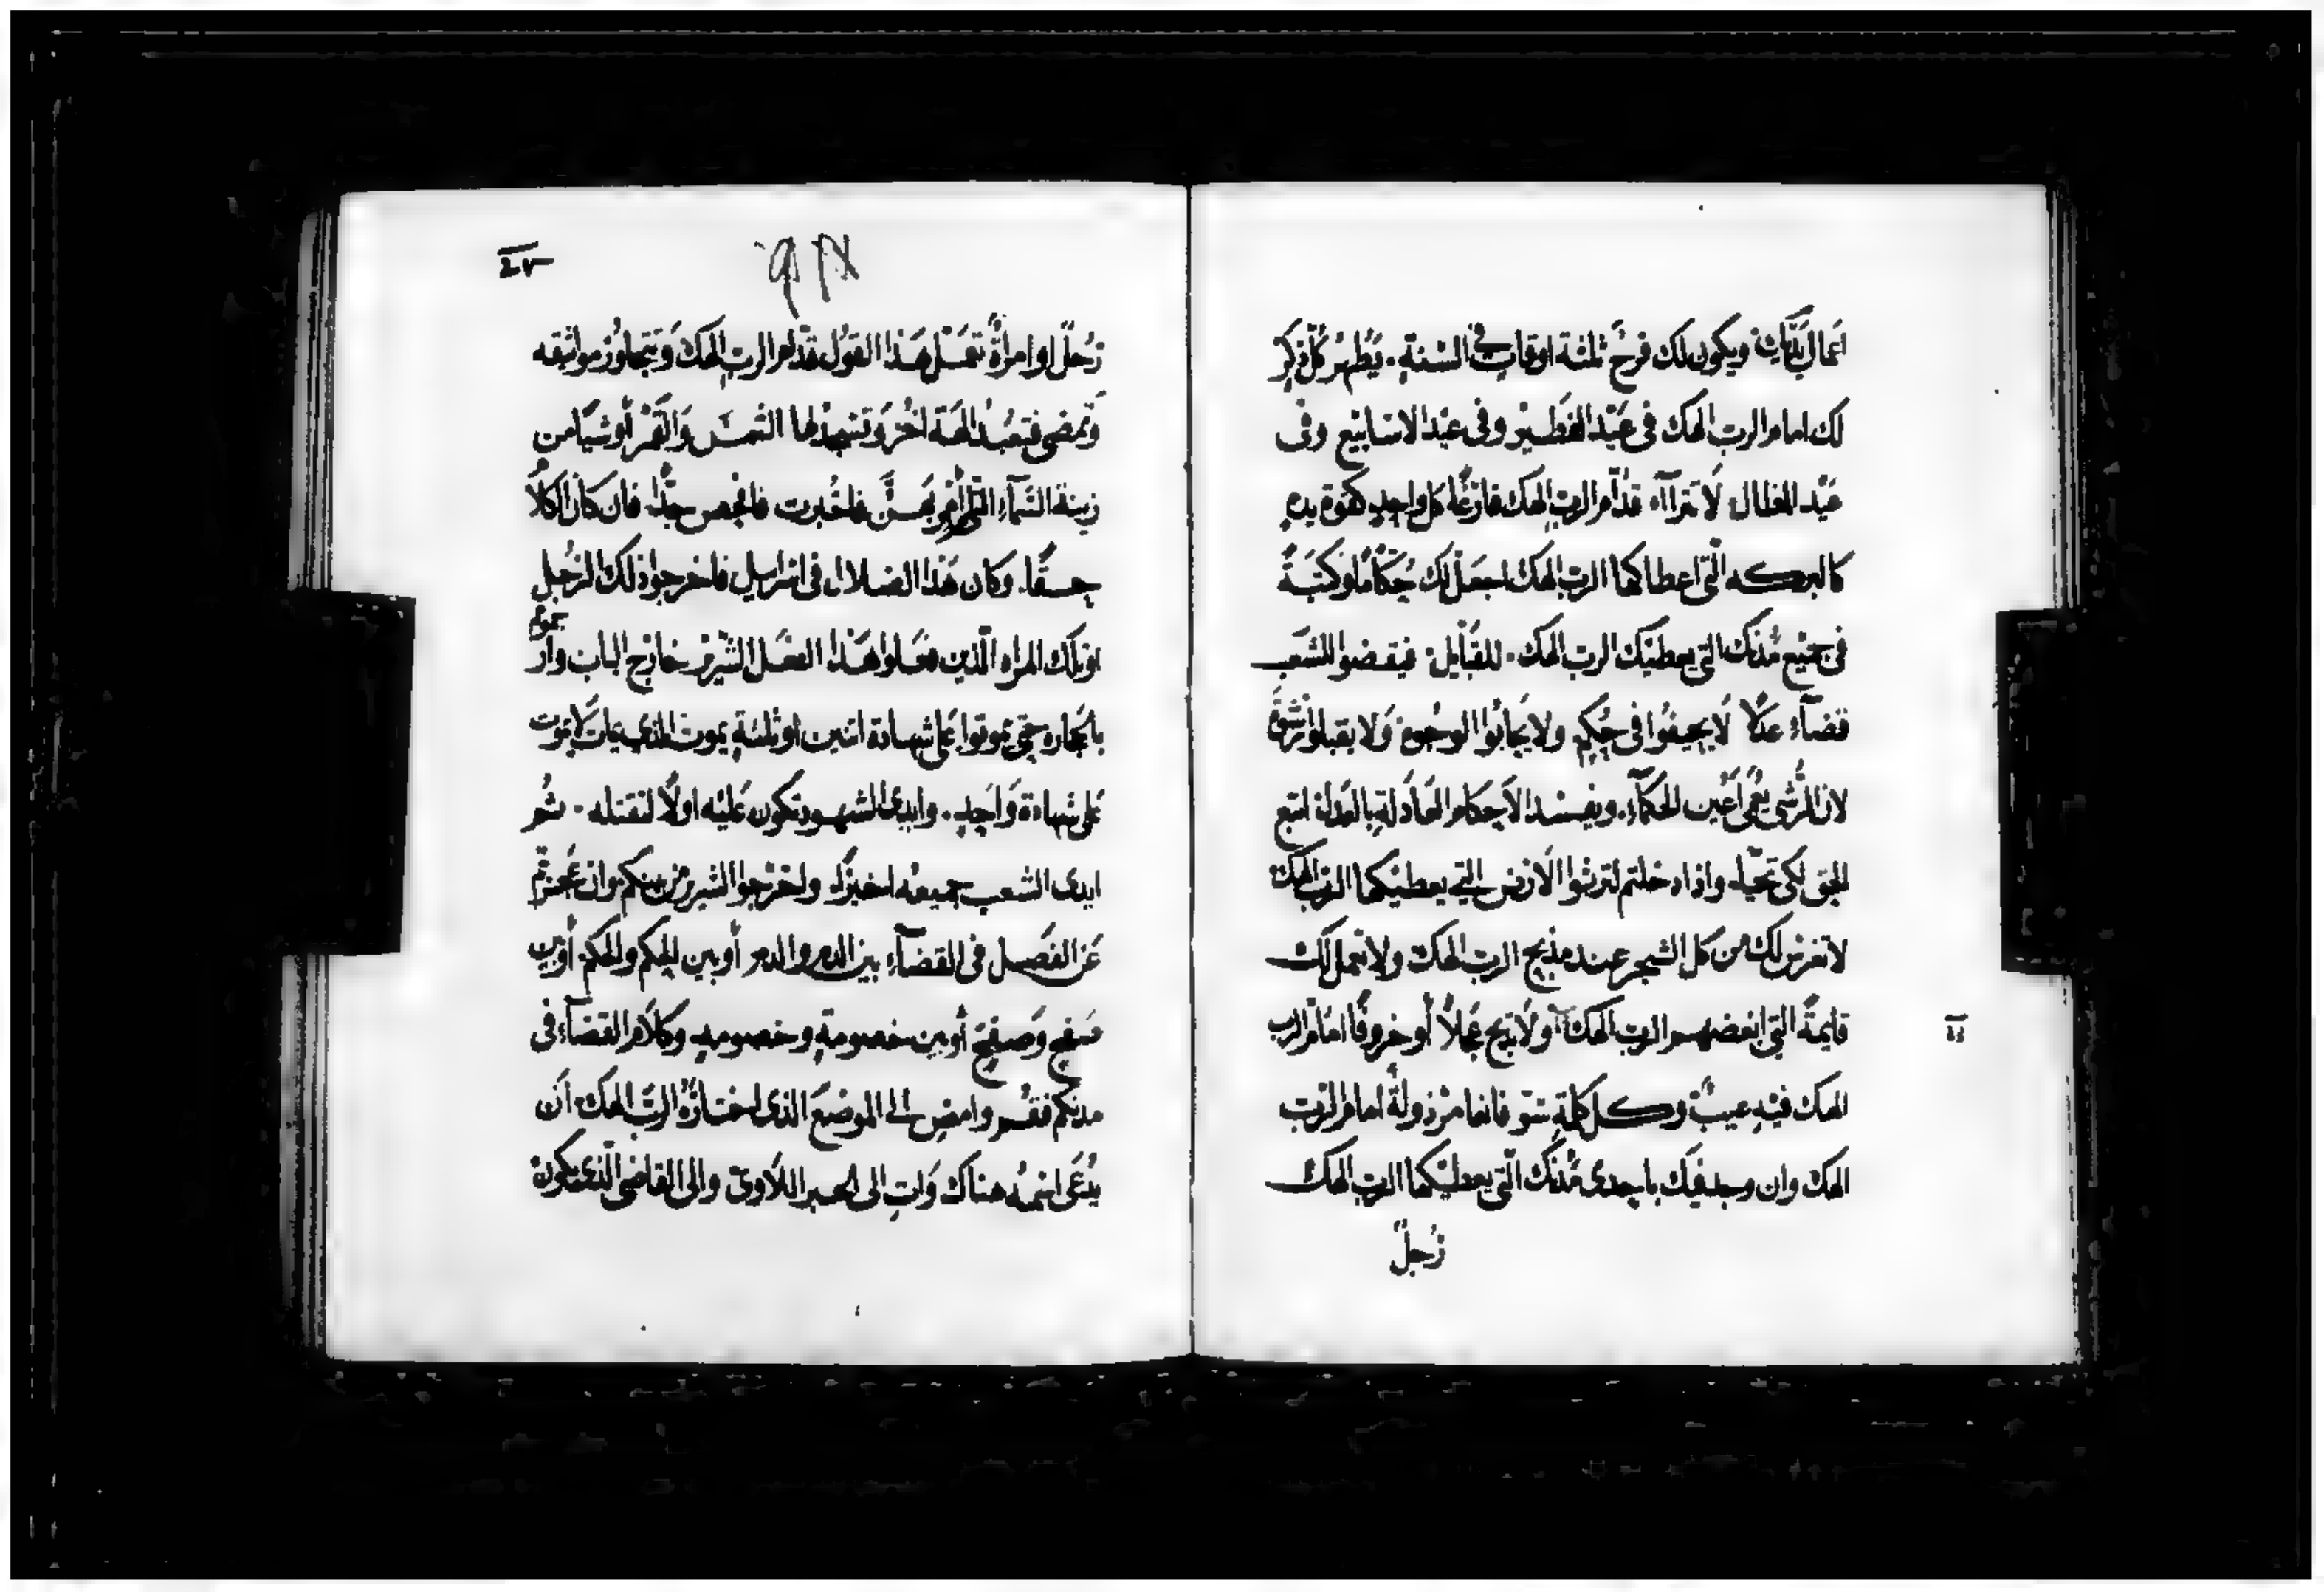 اعمال يديك ويكون لك فرح ثلثة اوقات في السنة. يظهر كل ذكر
لك امام الرب الهك في عيد الفطير وفي عيد الاسابيع وفي
عيد المظال لا تتراآء قدام الرب الهك فارغا كل واحد كقوة يده
كالبركه التي اعطاكها الرب الهك اجعل لك حكاما وكتبة
في جميع مدنك التي يعطيك الرب الهك. للقبايل. فيقضوا للشعب
قضآء عدلا لا يحيفوا في حكم ولا يحابوا الوجوه ولا يقبلوا رشوة
لان الرشي يعمي اعين الحكمآء. ويفسد الاحكام العادلة بالعدل اتبع
الحق لكي تحيا. واذا دخلتم لترثوا الارض التي يعطيكها الرب الهك
لا تغرس لك من كل الشجر عند مذبح الرب الهك ولا تعمل لك
قايمة التي ابغضهم الرب الهك ولا تذبح عجلا أو خروفا امام الرب
الهك فيه عيب وكل كلمة سو فانها مرذولة امام الرب
الهك وان وجد فيك باحدى مدنك التي يعطيكها الرب الهك
رجل
رجل او امراة تعمل هذا القول قدام الرب الهك وتتجاوز مواثيقه
وتمضي فتعبد الهة اخر وتسجد لها الشمس والقمر أو شيا من
زينة السمآء التي لم امر بهن فاخبرت فافحص جدا فان كان الكلام
حقا. وكان هذا الضلال في اسرايل فاخرجوا ذلك الرجل
او تلك المراه الذين فعلوا هذا الفعل الشرير خارج الباب وار
جموهم
بالحجاره حتي يموتوا على شهادة اثنين او ثلثة يموت الذي يمات لا يموت
على شهادة واحد. وايدي الشهود تكون عليه اولا لتقتله. ثم
ايدي الشعب جميعه اخيرا. واخرجوا الشرير من بينكم وان عجزتم
عن الفصل في القضآء بين الدم والدم أو بين الحكم والحكم أو بين
صفح وصفح أو بين خصومة وخصومه وكلام القضآء في
مدنكم فقم وامض الى الموضع الذي اختاره الرب الهك ان
يدعى اسمه هناك وات الى الحبر اللاوي والى القاضي الذي يكون